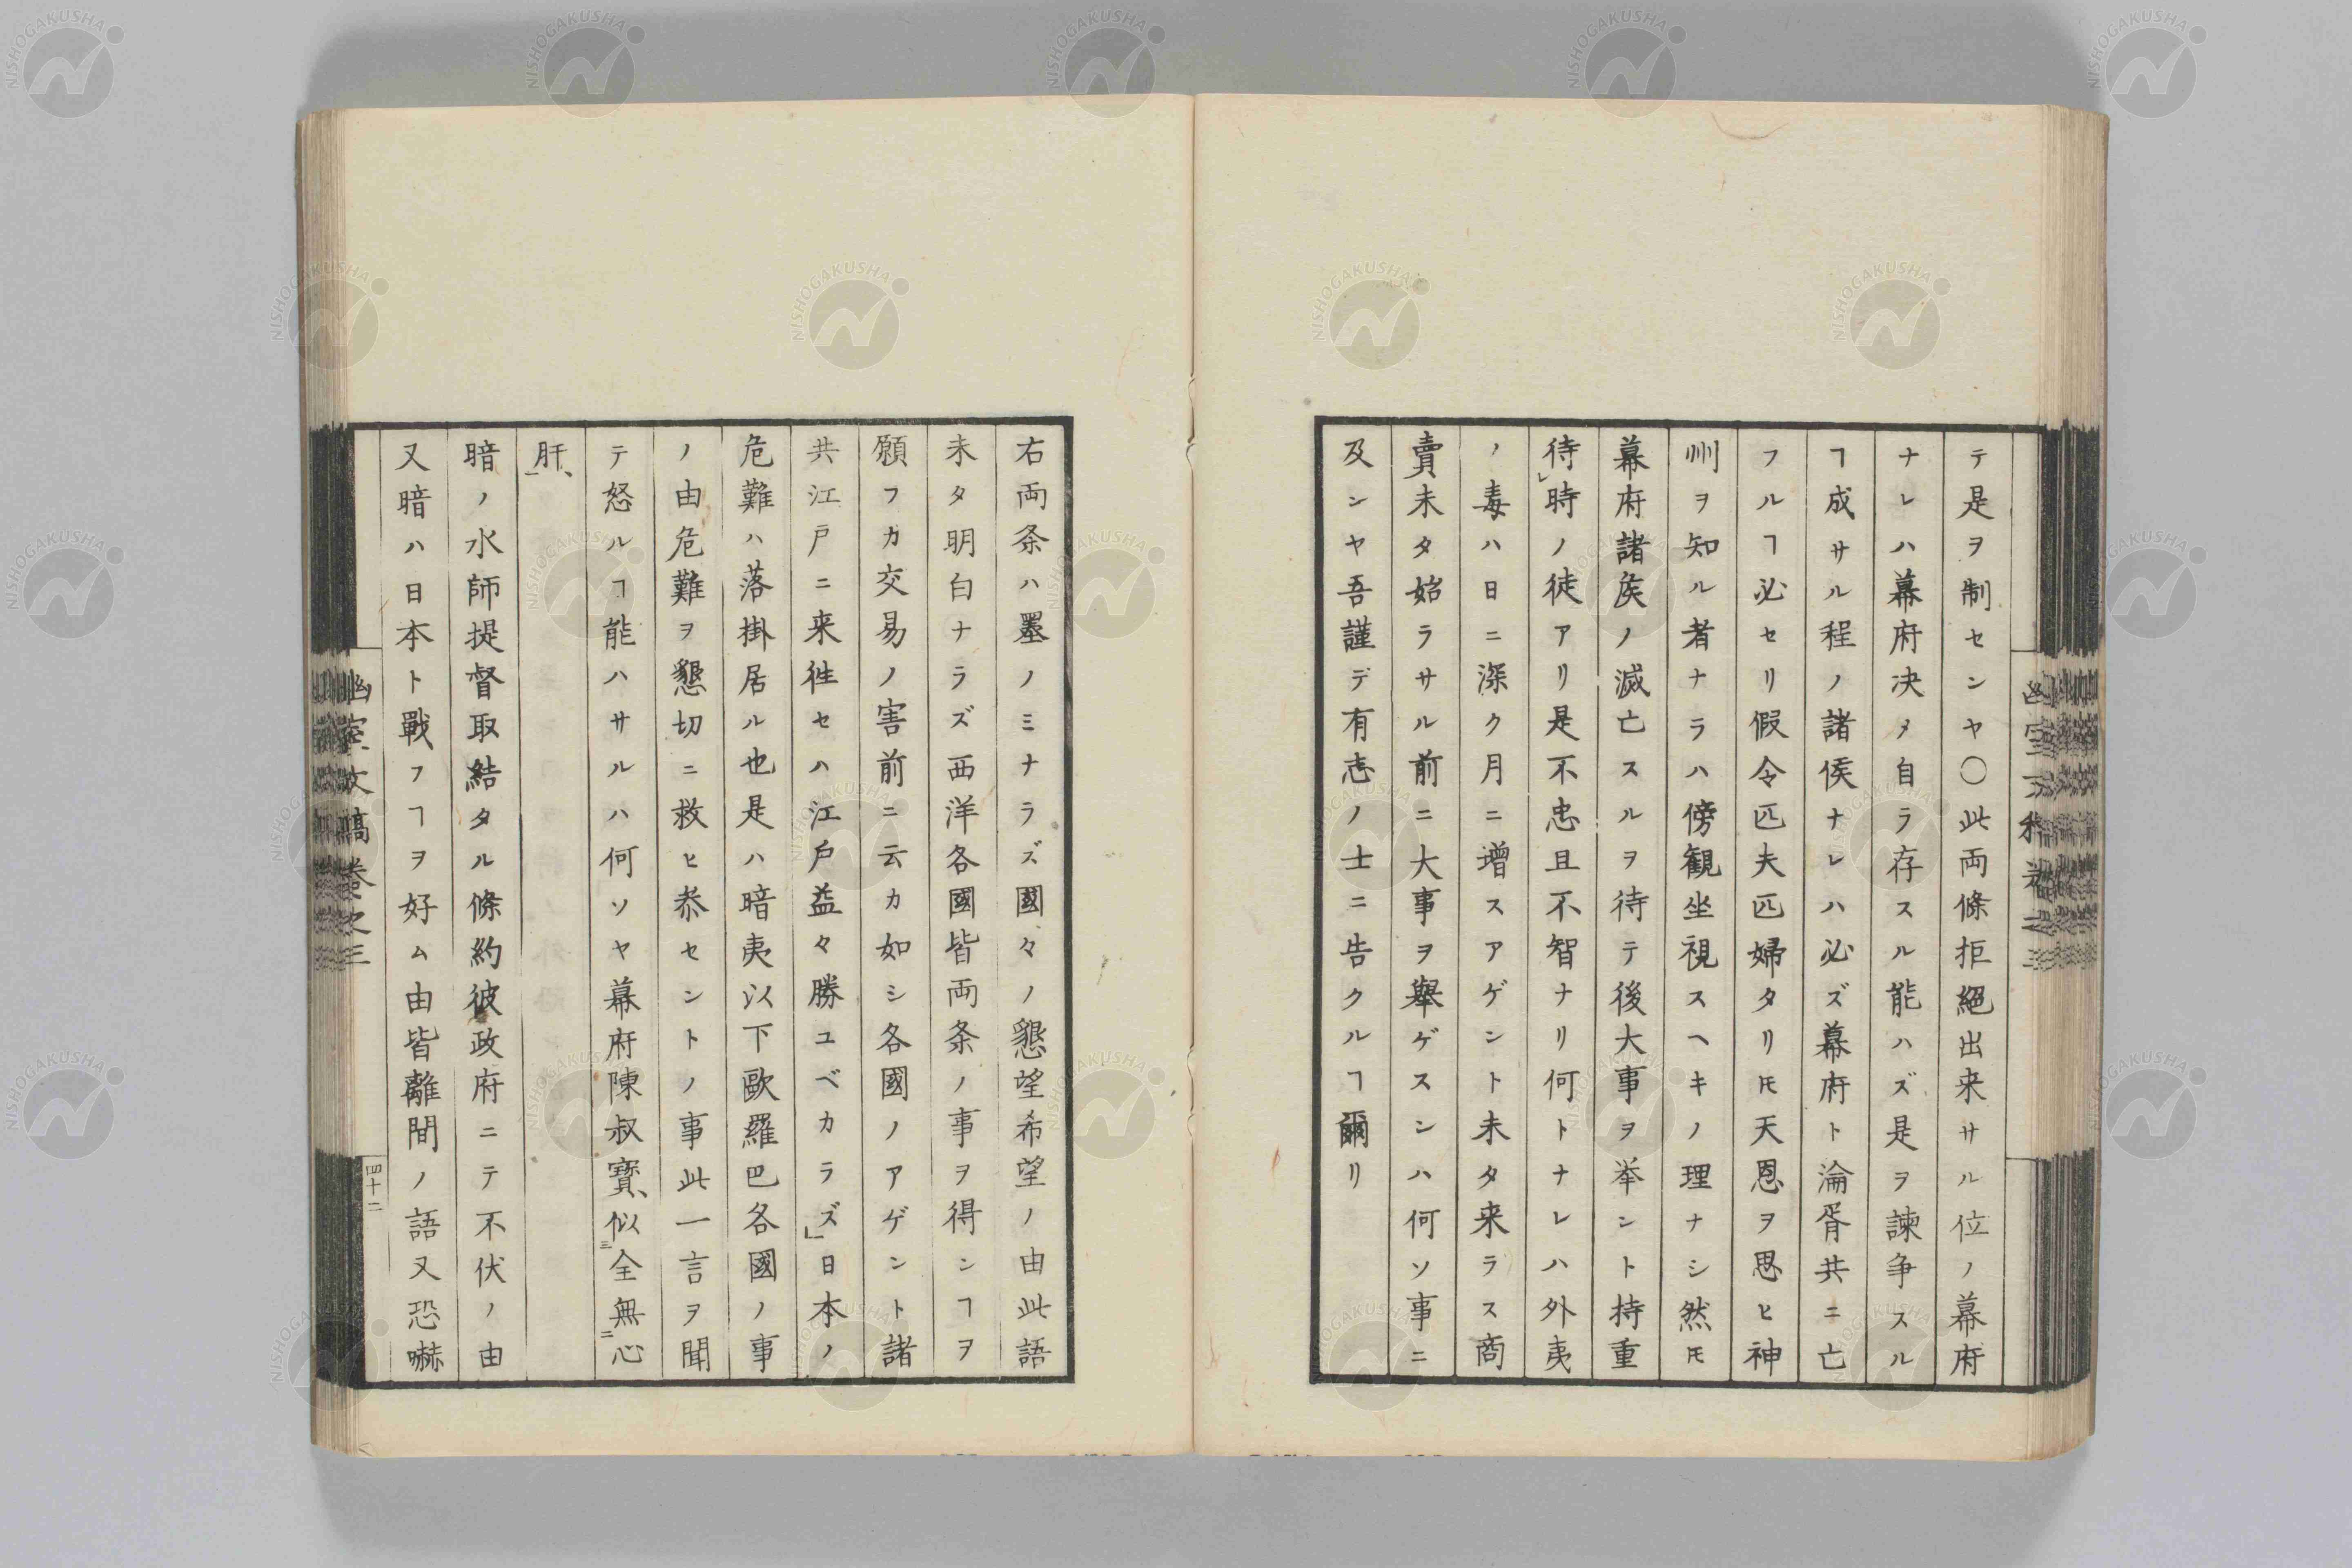 テ是ヲ制センヤ〇此両條拒絕出来サル位ノ幕府
ナレハ幕府决メ自ラ存スル能ハズ是ヲ諫争スル
ヿ成サル程ノ諸侯ナレハ必ズ幕府ト淪胥共ニ亡
フルヿ必セリ假令匹夫匹婦タリ𪜈天恩ヲ思ヒ神
州ヲ知ル者ナラハ傍観坐視スヘキノ理ナシ然𪜈
幕府諸矦ノ滅亡スルヲ待テ後大事ヲ挙ント持重
待」時ノ徒アリ是不忠且不智ナリ何トナレハ外夷
ノ毒ハ日ニ深ク月ニ増スアゲント未タ来ラス商
賣未タ始ラサル前ニ大事ヲ舉ゲスンハ何ソ事ニ
及ンヤ吾謹デ有志ノ士ニ告クルヿ爾リ
右両条ハ墨ノミナラズ國々ノ懇望希望ノ由此語
未タ明白ナラズ西洋各國皆両条ノ事ヲ得ンヿヲ
願フカ交易ノ害前ニ云カ如シ各國ノアゲント諸
共江戸ニ来徃セハ江戸益々勝ユベカラズ」日本ノ
危難ハ落掛居ル也是ハ暗夷以下歐羅巴各國ノ事
ノ由危難ヲ懇切ニ救ヒ恭セントノ事此一言ヲ聞
テ怒ルヿ能ハサルハ何ソヤ幕府陳叔寳、似三全無二心
肝、一
暗ノ水師提督取結タル條約彼政府ニテ不伏ノ由
又暗ハ日本ト戰フヿヲ好ム由皆離間ノ語又恐嚇
幽室文稿卷之三
四十二